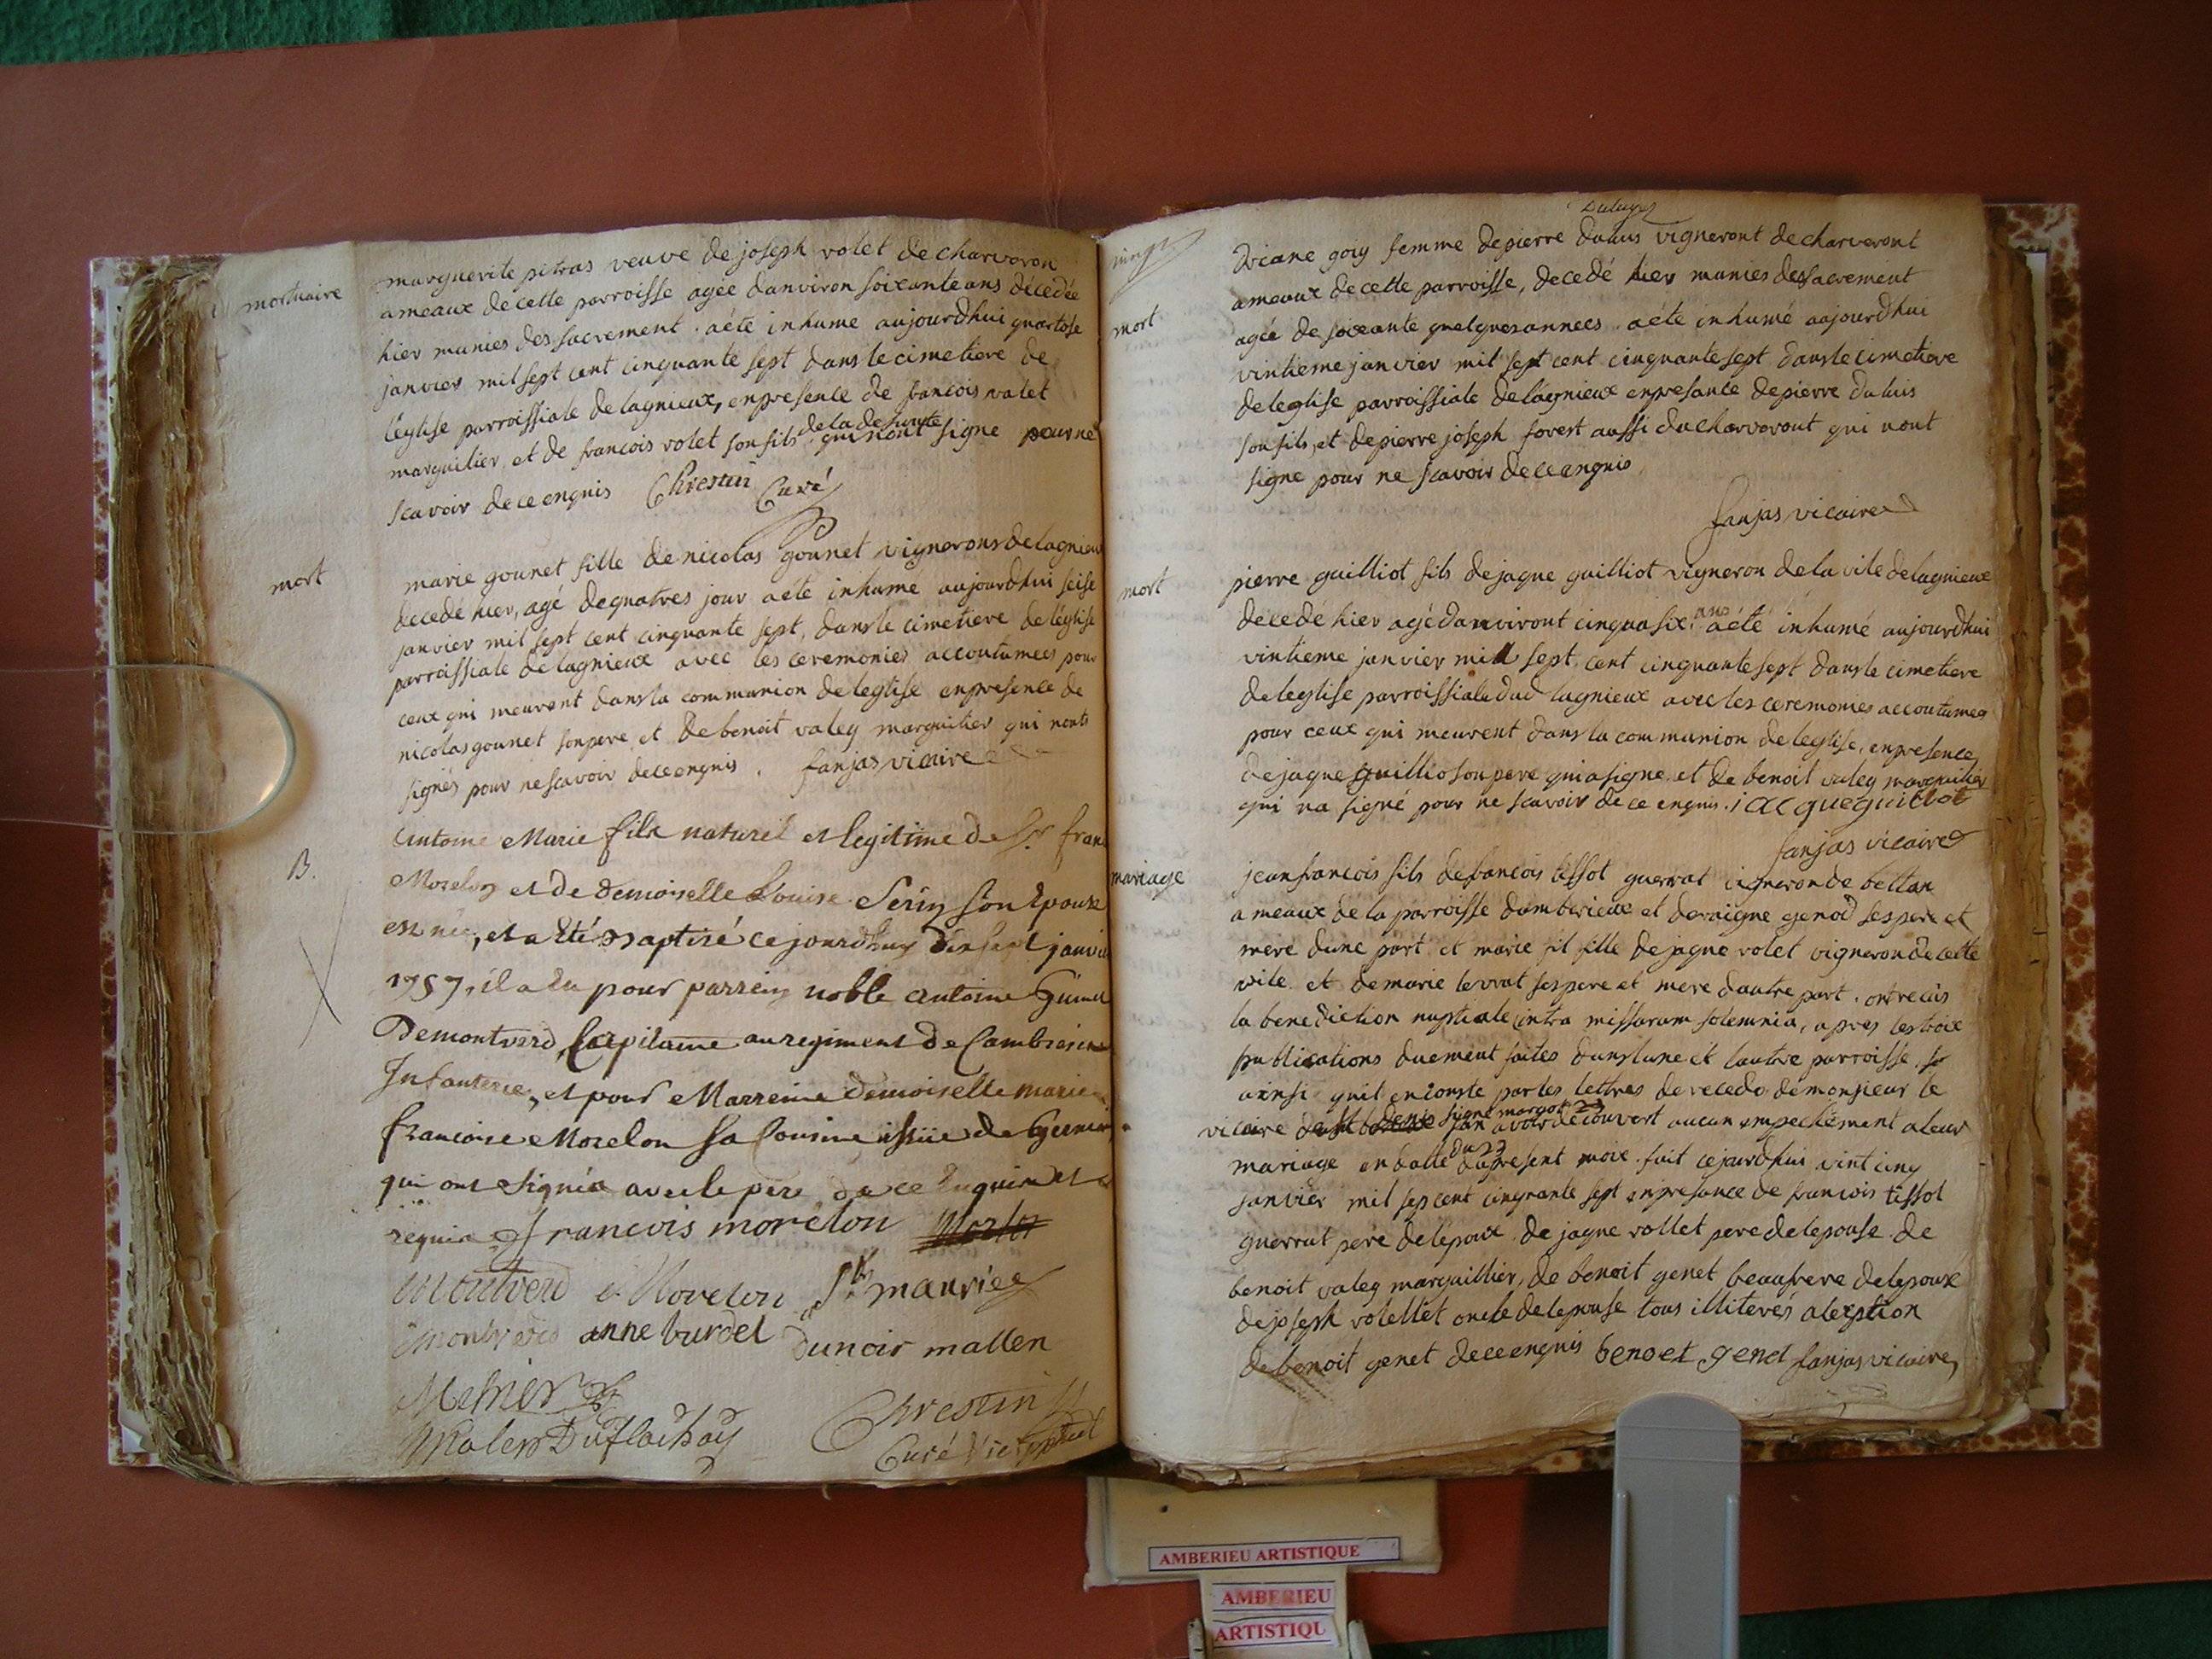 mortuaire
marguerite pitras veuve de joseph volet de charvoron
ameaux de cette parroisse agée danviron soixante ans décédée
hier munies des sacrement. aété inhume aujourdhui quartose
janvier mil sept cent cinquante sept dans le cimetiere de
léglise parroissiale de lagnieux, enpresence de francois valet
marguilier, et de francois volet son fils de la defunte qui nont signe pour ne
scavoir de ce enquis Chrestin Curé
mort
marie gounet fille de nicolas gounet vignerons de lagnieu
decedé hier, agé de quatres jour aété inhume aujourdhui seise
janvier mil sept cent cinquante sept, dans le cimetiere de léglise
parroissiale de lagnieux avec les ceremonies accoutumees pour
ceux qui meurent dans la communion de leglise enpresence de
nicolas gounet son pere, et de benoit valey marguilier qui nonts
signés pour ne scavoir de ce enquis. fanjas vicaire
B.
Antoine Marie fils naturel et legitime de Sr. fran
Morelon et de demoiselle Louise Serin son Epouse
est né, et a été Baptisé ce jourdhuy dix sept janvie
1757, il a eu pour parrein noble antoine
Demontverd Capitaine au regiment de Cambresis
Infanterie, et pour Marreine demoiselle marie
francoise Morelon sa Cousine issüe de Germain
qui ont signéz avec le pere de ce Enquis et
requis francois morélon
montverd Morelon St maurice
montverd anne burdel dunoir mallen
Chrestin
Curé
mort
Duluys
diane goiy femme de pierre duluis vigneront de charveront
ameaux de cette parroisse, decedé hier munies des sacrement
agée de soixante quelques annees. aété inhumé aujourdhui
vintieme janvier mil sept cent cinquante sept dans le cimetiere
de leglise parroissiale de lagnieux enpresance de pierre duluis
son fils, et de pierre joseph forest aussi du charveront qui nont
signe pour ne scavoir de ce enquis
fanjas vicaire
mort
pierre guilliot fils de jaque guilliot vigneron de la vile de lagnieux
decedé hier agé danviront cinquasix ans aété inhumé aujourdhui
vintieme janvier mill sept cent cinquante sept dans le cimetiere
de leglise parroissiale dud lagnieux avec les ceremonies accoutumes
pour ceux qui meurent dans la communion de leglise, enpresence
de jaque guillio son pere qui a signe, et de benoit valey marguilier
qui na signé pour ne scavoir de ce enquis. jacque guilliot
fanjas vicaire
mariage
jean francois fils de francois tissot guerrat vigneron de bettan
ameaux de la parroisse damberieux et de genod ses pere et
mere dune part et marie fille de jaque volet vigneron de cette
vile. et de marie levrat ses pere et mere dautre part. ont recus
la benediction nuptiale intra missarum solemnia, apres les troix
publications duement faites dans lune et lautre parroisse.
ainsi quil en conste par les lettres de recedo de monsieur le
vicaire signe margot san avoir decouvert aucun empechement a leur
mariage en datte du 23 du present moix. fait ce jourdhui vint cinq
janvier mil sept cent cinquante sept enpresance de francois tissot
guerrat pere de lepoux. de jaque vollet pere de lepouse de
benoit valey marguillier, de benoit genet beaufrere de lepoux
de joseph oncle de lepouse tous illiterés alexption
de benoit genet de ce enquis benoet genet fanjas vicaire
AMBERIEU ARTISTIQUE
AMBERIEU
ARTISTIQU